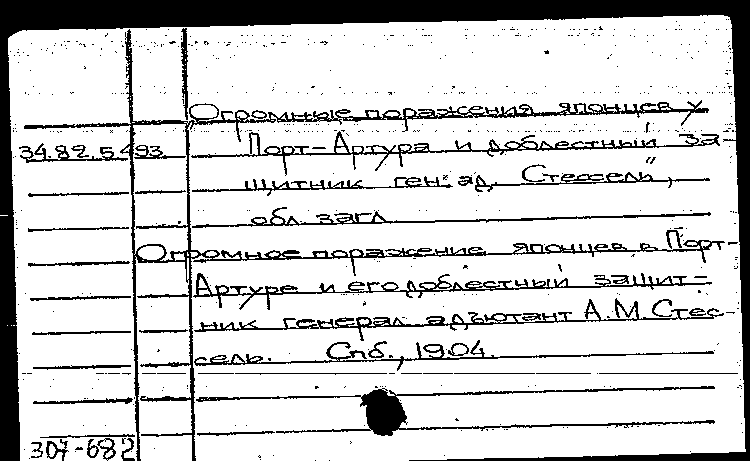 Огромные поражения японцев у
34.82.5.493 Порт-Артура и доблестный за-
щитник ген:ад. Стессель",
обл. загл
Огромное поражение японцев в Порт-
Артуре и его доблестный защит-
ник генерал адъютант А.М. Стес-
сель. Спб., 1904.
307-682